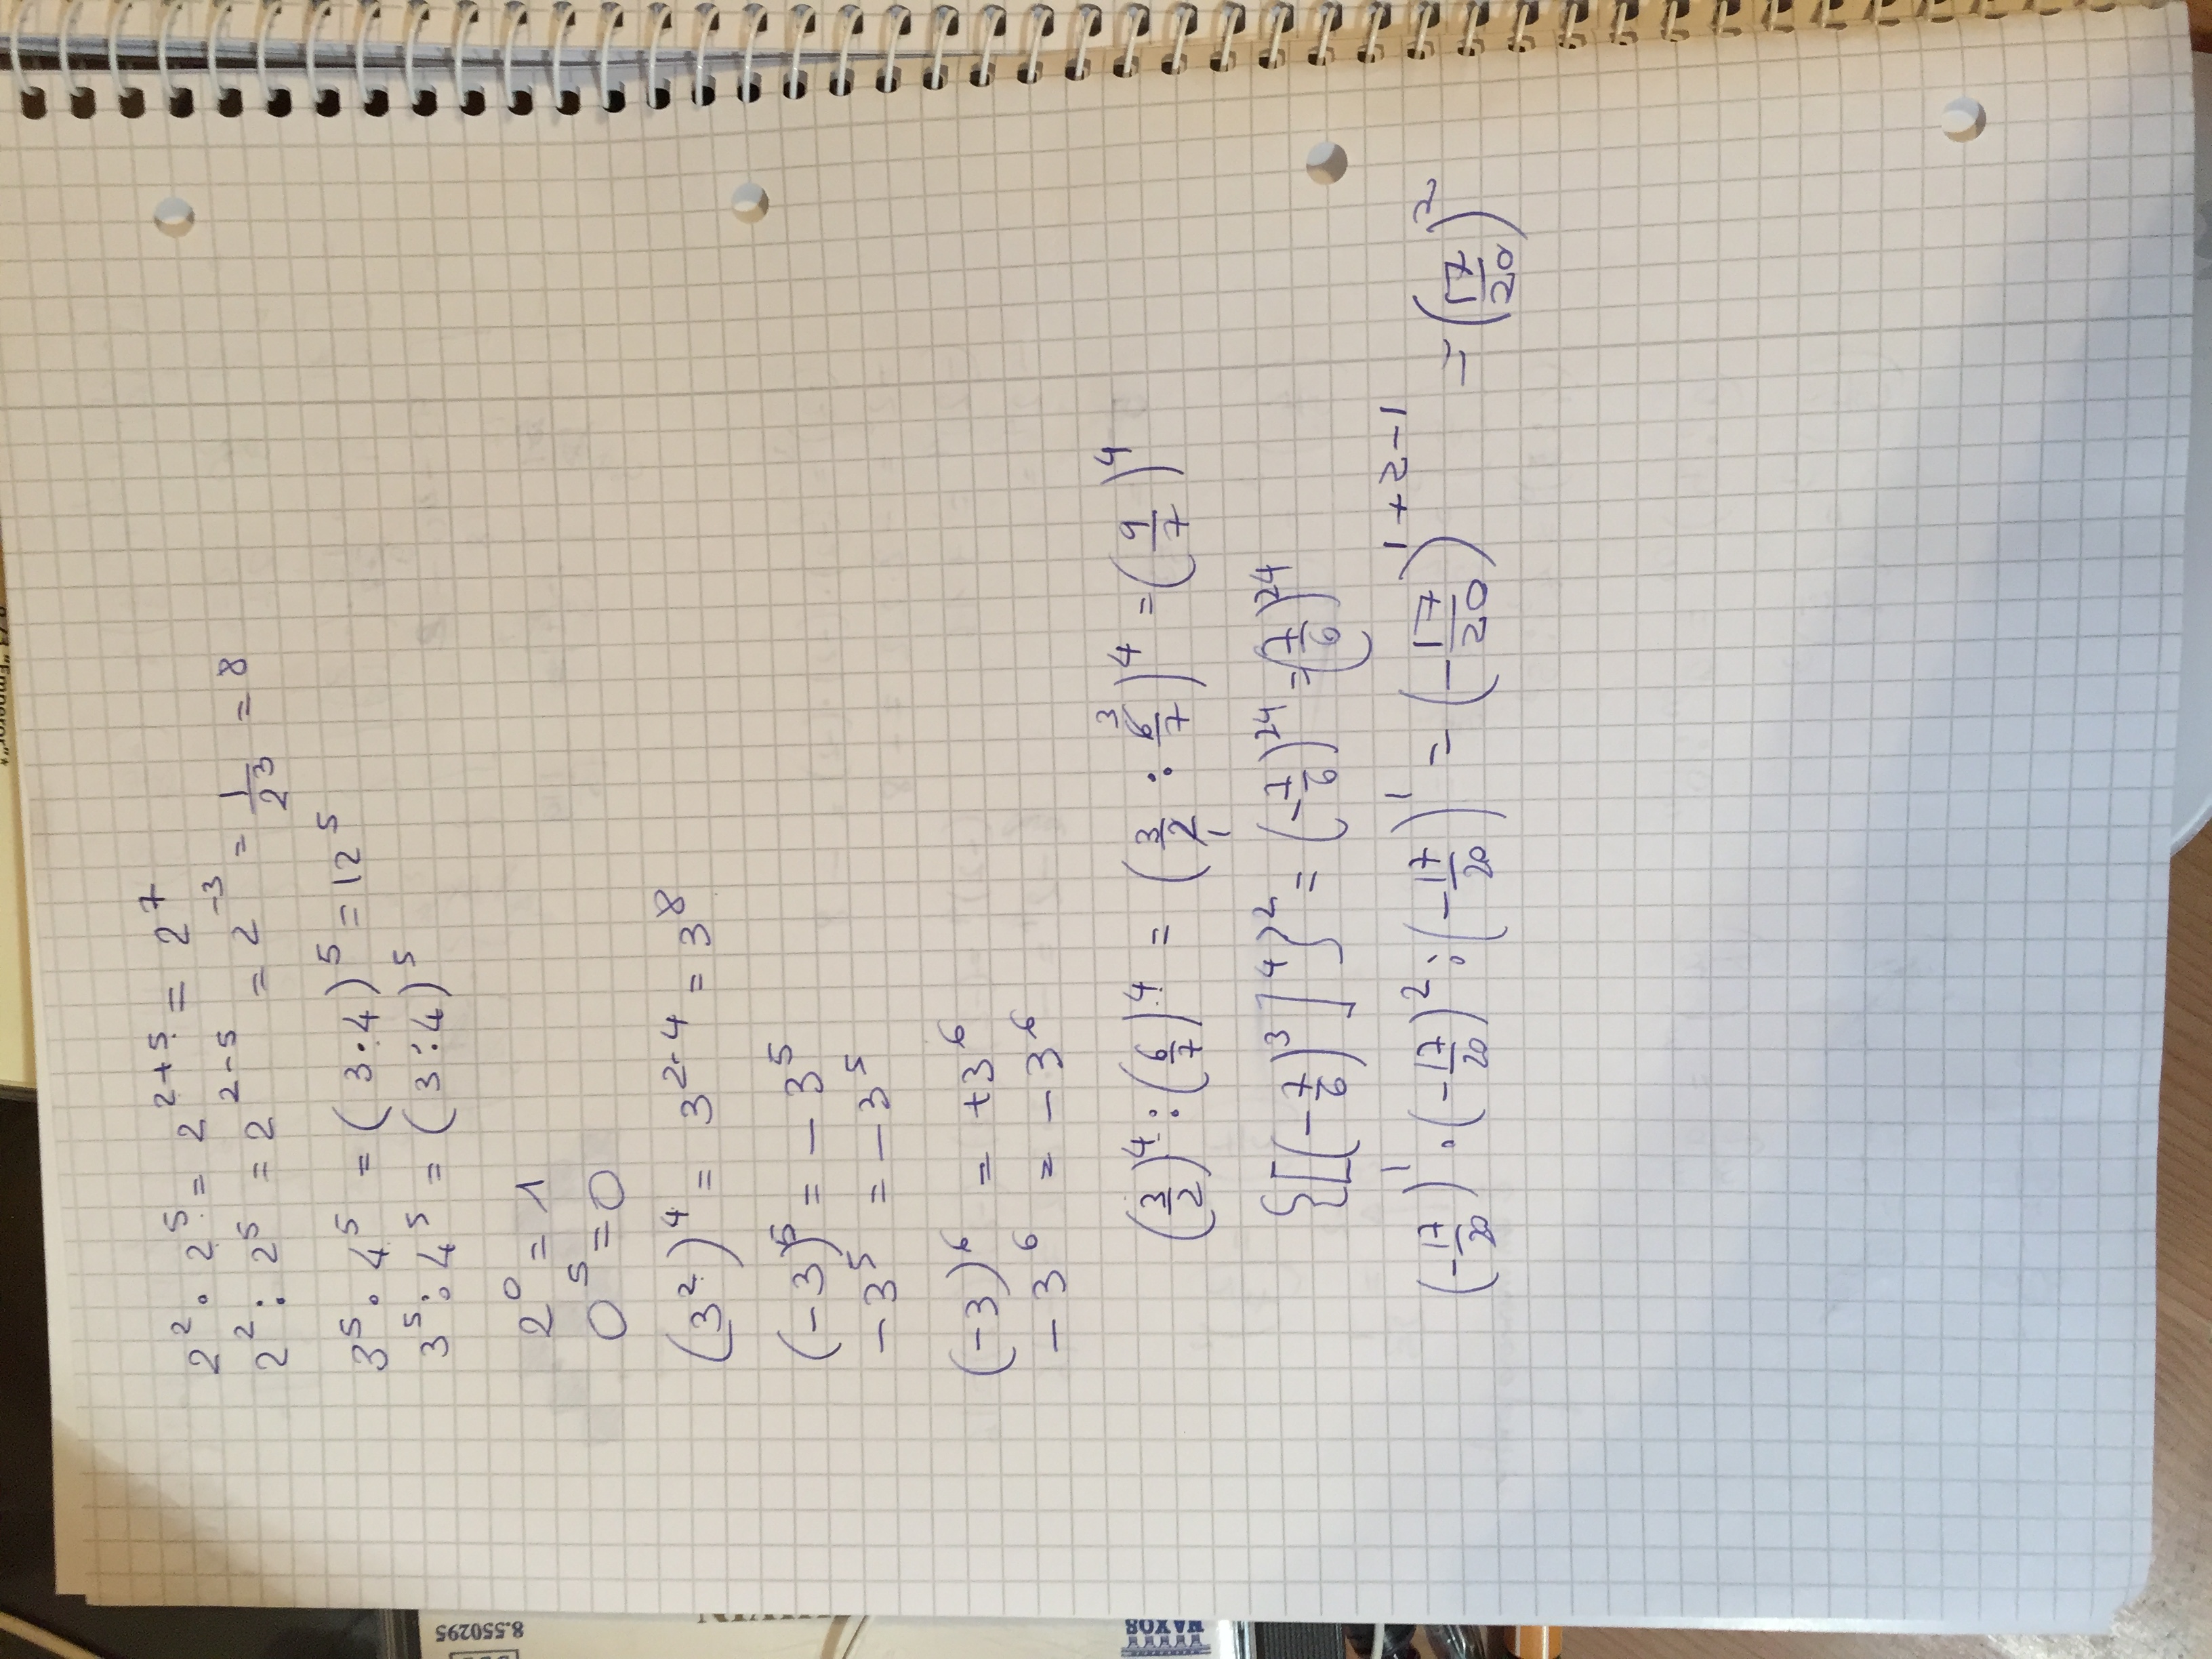 2² · 2⁵ = 2²⁺⁵ = 2⁷
2² : 2⁵ = 2²⁻⁵ = 2⁻³ = 1/2³ = 8
3⁵ · 4⁵ = (3 · 4)⁵ = 12⁵
3⁵ : 4⁵ = (3 : 4)⁵
2⁰ = 1
0⁵ = 0
(3²)⁴ = 3²·⁴ = 3⁸
(-3)⁵ = -3⁵
-3⁵ = -3⁵
(-3)⁶ = +3⁶
-3⁶ = -3⁶
(3/2)⁴ : (6/7)⁴ = (3/2 · 6/7)⁴ = (9/7)⁴
{[(-7/6)³]⁴}² = (-7/6)²⁴ = (7/6)²⁴
(-17/20)¹ · (-17/20)² : (-17/20)¹ = (-17/20)¹⁺²⁻¹ = (17/20)²
8.550295
WAXOS